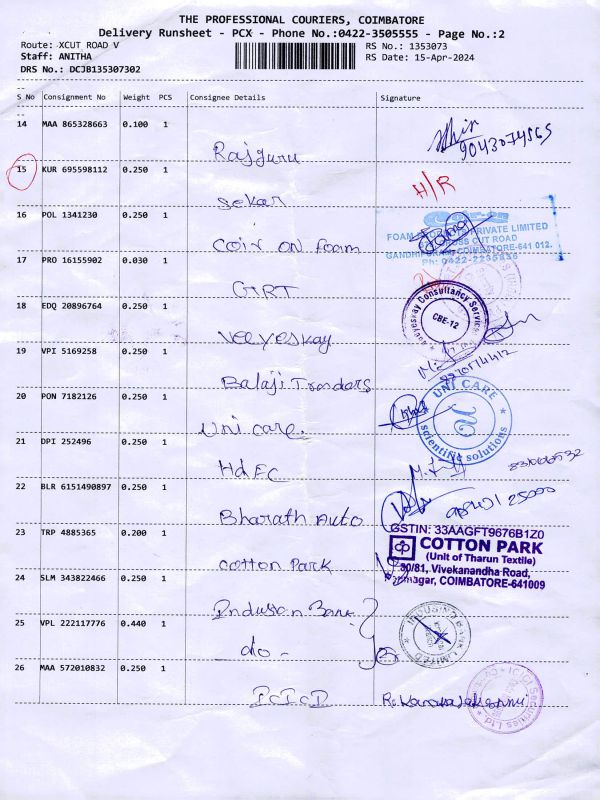 THE PROFESSIONAL COURIERS, COIMBATORE
Delivery Runsheet - PCX - Phone No.:0422-3505555 - Page No.:2
Route: XCUT ROAD V RS No.: 1353073
Staff: ANITHA RS Date: 15-Apr-2024
DRS No.: DCJB135307302
S No Consignment No Weight PCS Consignee Details Signature
14 MAA 865328663 0.100 1
Rajguru 9043074565
15 KUR 695598112 0.250 1
Sekar H/R
16 POL 1341230 0.250 1
Coir on Foam
PRIVATE LIMITED
CUT ROAD
COIMBATORE-641 012.
Ph: 0422-2236836
17 PRO 16155902 0.030 1
GIRT
18 EDQ 20896764 0.250 1
Veeyeskay
Consultancy Service
CBE-12
19 VPI 5169258 0.250 1
Balaji Traders
20 PON 7182126 0.250 1
Uni care.
UNI CARE
scientific solutions
21 DPI 252496 0.250 1
HdFC
22 BLR 6151490897 0.250 1
Bharath Auto
23 TRP 4885365 0.200 1
Cotton Park
GSTIN: 33AAGFT9676B1Z0
COTTON PARK
(Unit of Tharun Textile)
80/81, Vivekanandha Road,
COIMBATORE-641009
24 SLM 343822466 0.250 1
Indusian Bank
25 VPL 222117776 0.440 1
do -
26 MAA 572010832 0.250 1
ICICI
ICICI Securities Ltd